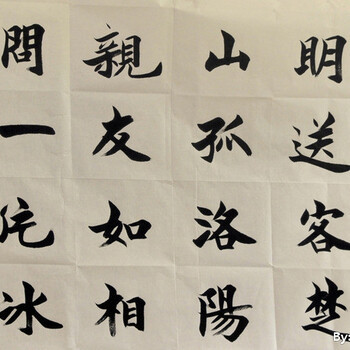 明送客楚
山孤洛陽
親友如相
問一片冰